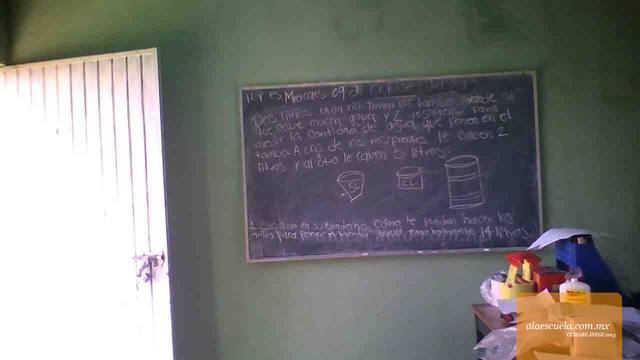 Miercoles 09 de
Dos niños en un rio. Tienen un tambo grande
que cave mucha agua y 2 recipiente para
medir la cantidad de agua que ponen en el
tambo. A uno de los recipientes le caben 2
litros y al otro le caben 5 litros.
1. escriban en su cuaderno cómo le pueden hacer los
niños para poner el tambo 14 litros
alaescuela.com.mx
CEMABE-INEGI 2013